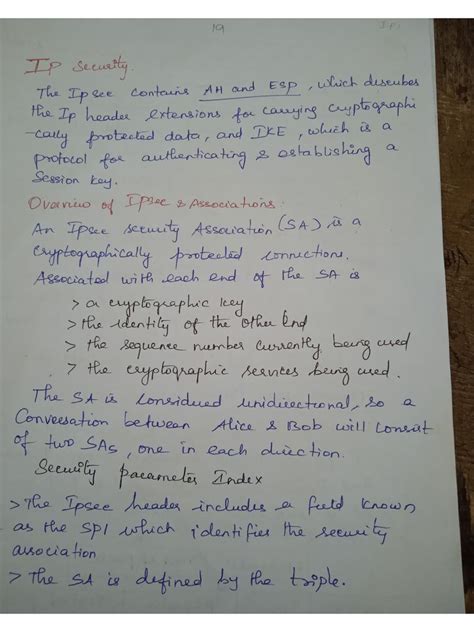 19
IP Security.
The Ipsec contains AH and ESP, which describes
the Ip header extensions for carrying cryptographi
-cally protected data, and IKE, which is a
protocol for authenticating & establishing a
Session key.
Overview of Ipsec & Associations:
An Ipsec security Association (SA), is a
cryptographically protected connections.
Associated with each end of the SA is
> a cryptographic key
> the identity of the other End
> the sequence number currently being used
> the cryptographic services being used.
The SA is considered unidirectional, so a
Conversation between Alice & Bob will consist
of two SAs, one in each direction.
Security parameter Index
> The Ipsec header includes a field known
as the SPI which identifies the security
association
> The SA is defined by the triple.